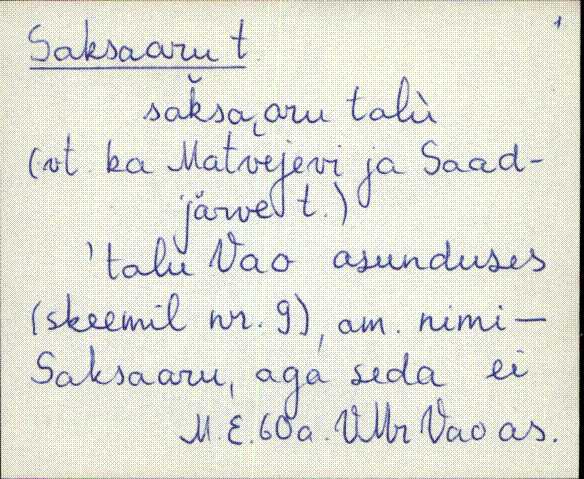 1
Saksaaru t.
sak̆sa‿aru talù
(vt. ka Matvejevi ja Saad-
järve t.)
'talu Vao asunduses
(skeemil nr. 9), am. nimi —
Saksaaru, aga seda ei
M. E. 60a. VMr Vao as.